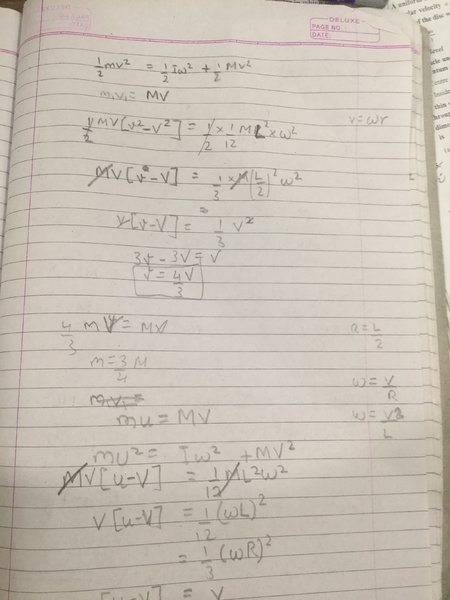 DELUXE
PAGE NO.
DATE
A uniform
velocity
of the disc
1/2 mv² = 1/2 Iω² + 1/2 Mv²
m₁v₁ = MV
1/2 MV[v² - V²] = 1/2 × 1/12 ML² × ω²
v = ωr
MV[v - V] = 1/3 × M(L/2)² ω²
V[v - V] = 1/3 V²
3v - 3V = V
v = 4V/3
4/3 m V = MV
R = L/2
m = 3/4 M
ω = V/R
mv₁ =
ω = V2/L
mu = MV
mu² = Iω² + MV²
MV[u - V] = 1/12 ML²ω²
V[u - V] = 1/12 (ωL)²
= 1/3 (ωR)²
[u - V] = V